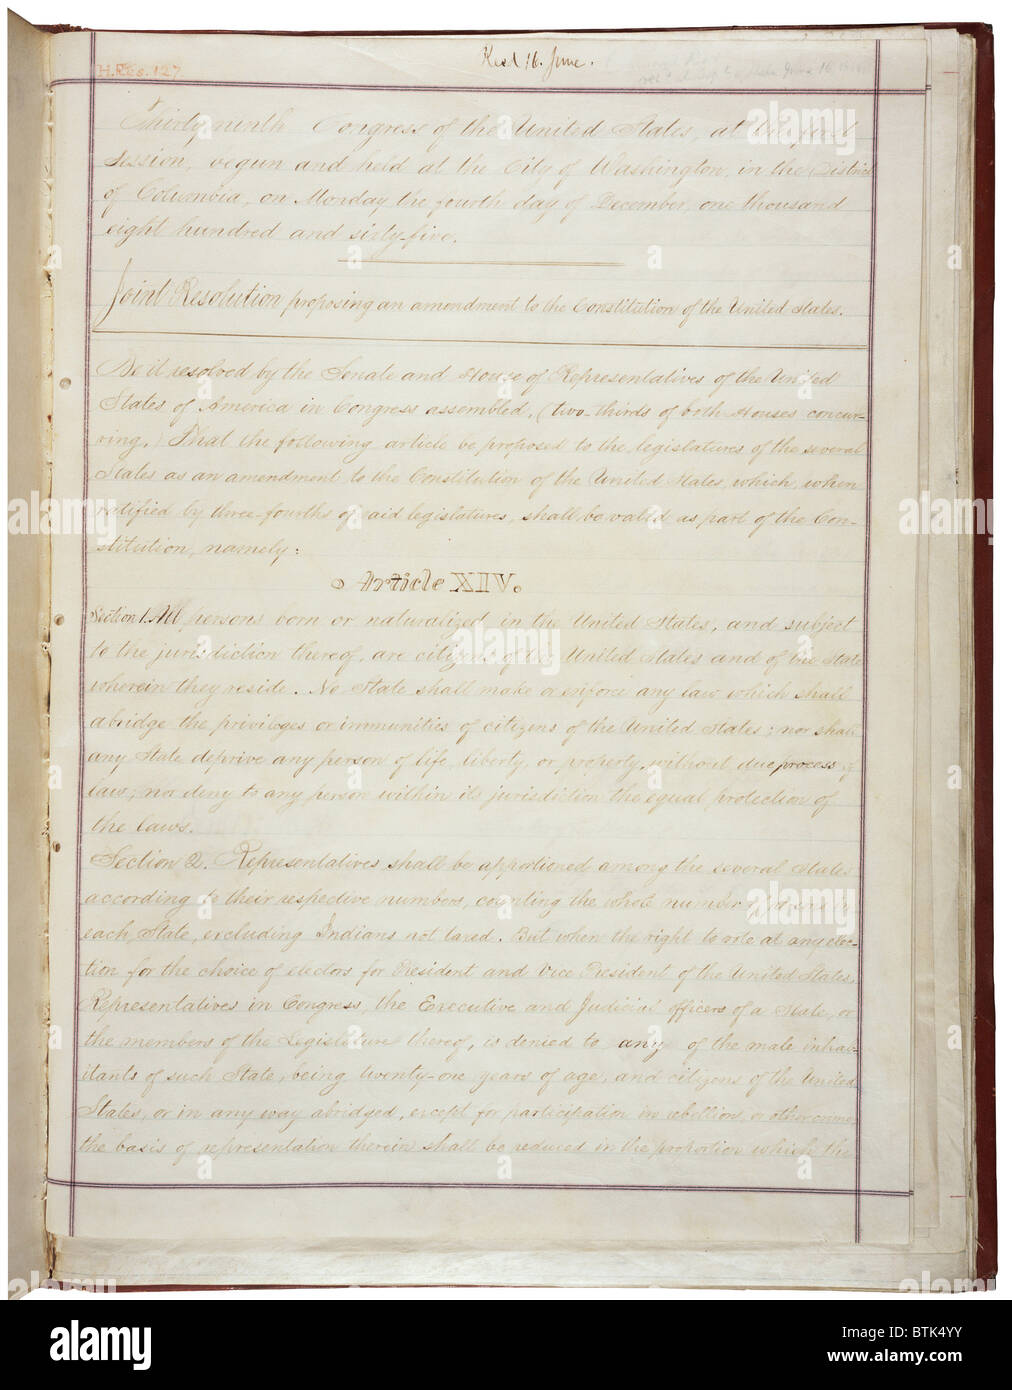 H.Res. 127
Recd 16. June.
Thirty ninth Congress of the United States, at the first
Session, begun and held at the City of Washington, in the District
of Columbia, on Monday the fourth day of December, one thousand
eight hundred and sixty-five.
Joint Resolution proposing an amendment to the Constitution of the United States.
Be it resolved by the Senate and House of Representatives of the United
States of America in Congress assembled, (two-thirds of both Houses concur-
ring,) That the following article be proposed to the legislatures of the several
States as an amendment to the Constitution of the United States, which, when
ratified by three-fourths of said legislatures, shall be valid as part of the Con-
stitution, namely:
Article XIV.
Section 1. All persons born or naturalized in the United States, and subject
to the jurisdiction thereof, are citizens of the United States and of the State
wherein they reside. No State shall make or enforce any law which shall
abridge the privileges or immunities of citizens of the United States; nor shall
any State deprive any person of life, liberty, or property, without due process of
law; nor deny to any person within its jurisdiction the equal protection of
the laws.
Section 2. Representatives shall be apportioned among the several States
according to their respective numbers, counting the whole number of persons in
each State, excluding Indians not taxed. But when the right to vote at any elec-
tion for the choice of electors for President and Vice President of the United States,
Representatives in Congress, the Executive and Judicial officers of a State, or
the members of the Legislature thereof, is denied to any of the male inhab-
itants of such State, being twenty-one years of age, and citizens of the United
States, or in any way abridged, except for participation in rebellion, or other crime,
the basis of representation therein shall be reduced in the proportion which the
alamy
Image ID: BTK4YY
www.alamy.com